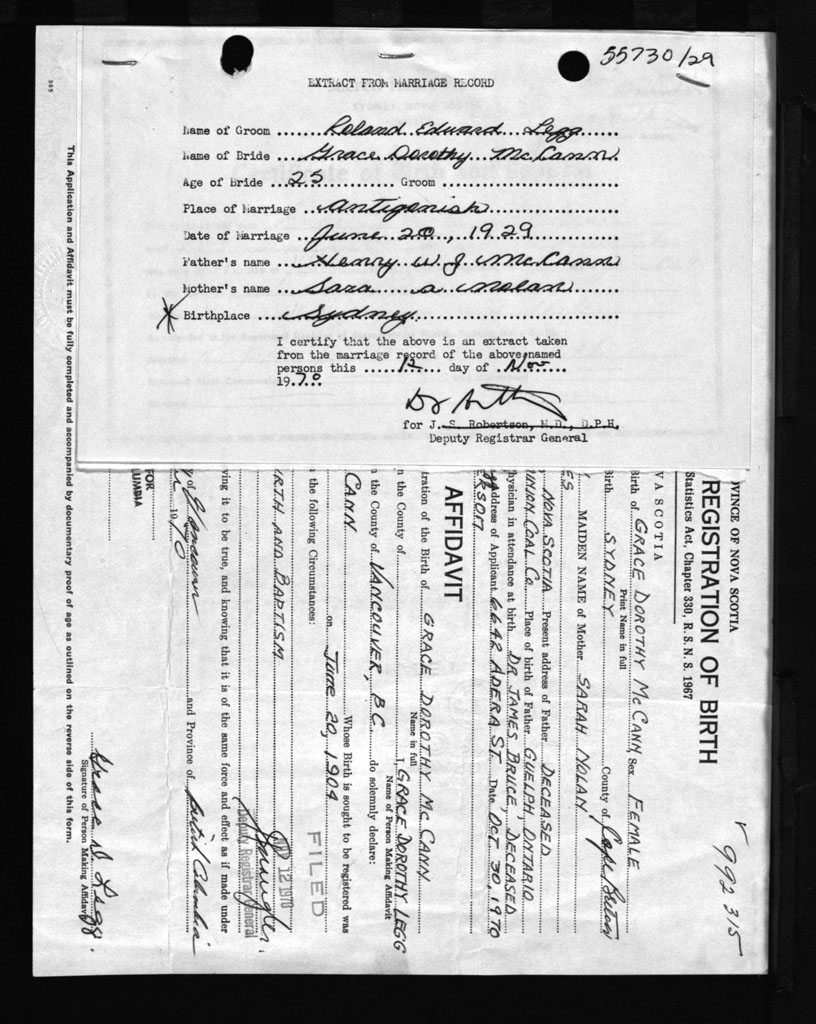 55730/29
EXTRACT FROM MARRIAGE RECORD
Name of Groom ....... Roland Edward Legg ......
Name of Bride ..... Grace Dorothy McCann.
Age of Bride ..25............. Groom ........................
Place of Marriage ... Antigonish .....................
Date of Marriage ... June 20, 1929 ................
Father's name .... Henry W. J. McCann
Mother's name .... Sara A Nolan ..............
* Birthplace .... Sydney ..............................
I certify that the above is an extract taken
from the marriage record of the above named
persons this ...... 12 ... day of . Nov ....
1970.
for J. S. Robertson, M.D., D.P.H.
Deputy Registrar General
r 992315
OVINCE OF NOVA SCOTIA
REGISTRATION OF BIRTH
Statistics Act, Chapter 330, R. S. N. S. 1967
VA SCOTIA
Birth of GRACE DOROTHY McCANN, Sex FEMALE
Print Name in full
Birth SYDNEY County of Cape Breton
MAIDEN NAME of Mother SARAH NOLAN
ES
NOVA SCOTIA Present address of Father DECEASED
INION COAL Co. Place of birth of Father GUELPH, ONTARIO
hysician in attendance at birth. DR JAMES BRUCE, DECEASED
Address of Applicant 6642 ADERA ST. Date OCT 30, 1970
ERSON
AFFIDAVIT
tration of the Birth of GRACE DOROTHY McCANN
Name in full
n the County of I, GRACE DOROTHY LEGG
Name of Person Making Affidavit
n the County of VANCOUVER, B.C. do solemnly declare:
CANN Whose Birth is sought to be registered was
on June 20, 1904
the following Circumstances:
FILED
IRTH AND BAPTISM
12 1970
Deputy Registrar General
ving it to be true, and knowing that it is of the same force and effect as if made under
y of Vancouver and Province of British Columbia
1970
FOR
LUMBIA
Grace D. Legg.
Signature of Person Making Affidavit
This Application and Affidavit must be fully completed and accompanied by documentary proof of age as outlined on the reverse side of this form.